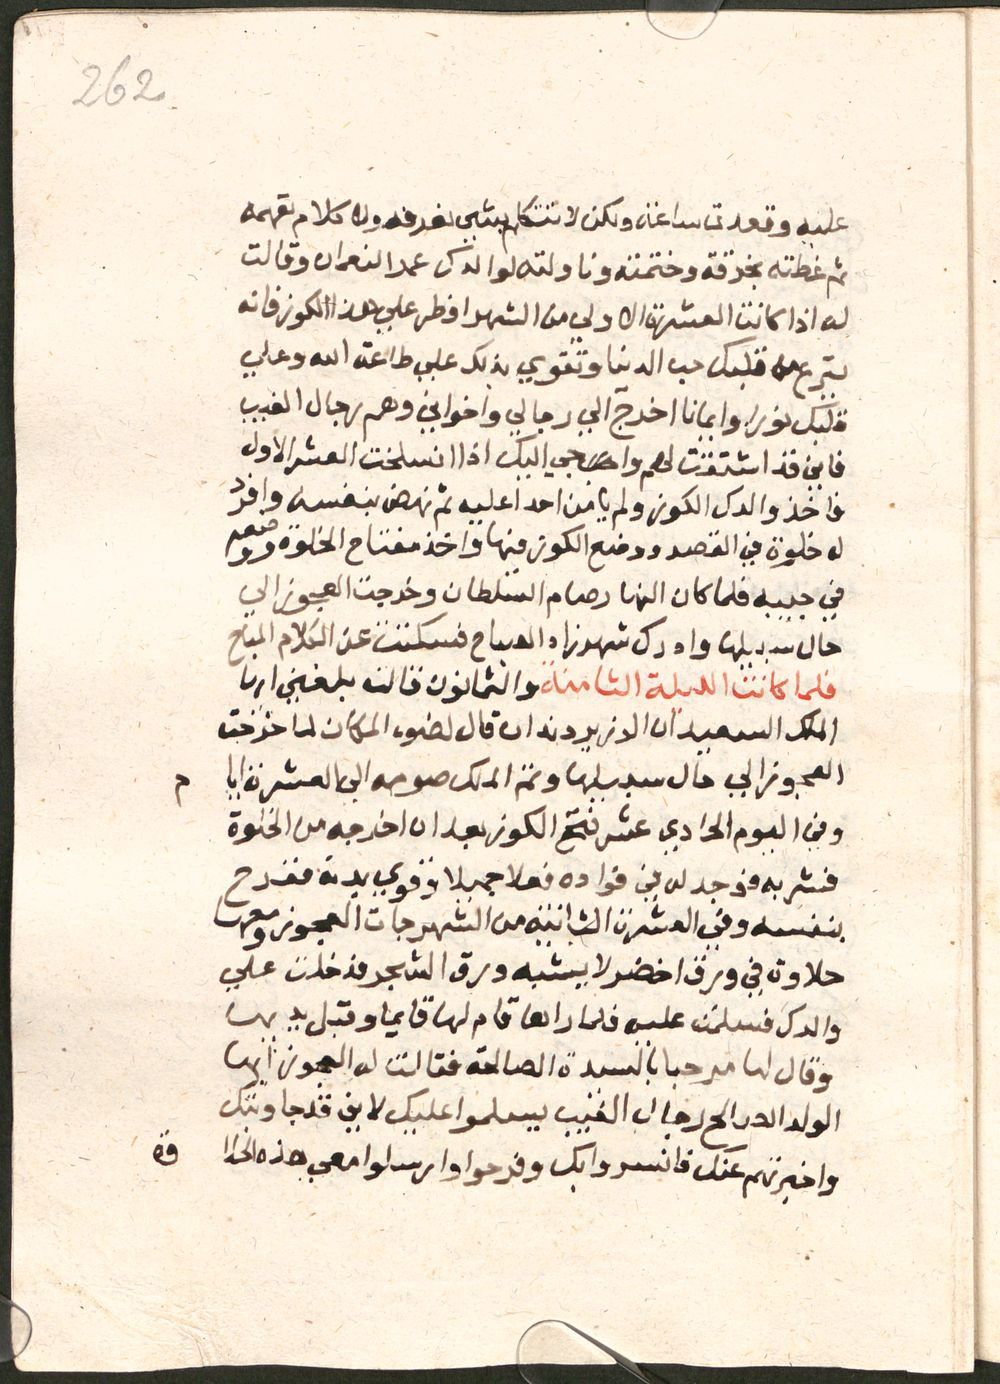 262
عليه وقعدت ساعة ولكن لا تتكلم بشي نعرفه ولا كلام نفهمه
ثم غطته بخرقة وختمته وناولته لوالدك عمر النعمان وقالت
له اذا كانت العشرة الاولي من الشهر افطر علي هذا الكوز فانه
ينزع من قلبك حب الدنيا وتقوي بذلك علي طاعة الله وعلي
قلبك نورا وايمانا اخرج الي رجالي واخواني وهم رجال الغيب
فاني قد اشتقت لهم واجي اليك اذا انسلخت العشر الاول
فاخذ والدك الكوز ولم يامن احدا عليه ثم نهض بنفسه وافرد
له خلوة في القصر ووضع الكوز فيها واخذ مفتاح الخلوة ووضعه
في جيبه فلما كان النهار صام السلطان وخرجت العجوز الي
حال سبيلها وادرك شهرزاد الصباح فسكتت عن الكلام المباح
فلما كانت الليلة الثامنة والثمانون قالت بلغني ايها
الملك السعيد ان الوزير دندان قال لضوء المكان لما خرجت
العجوز الي حال سبيلها وتم الملك صومه الي العشرة ايا
م
وفي اليوم الحادي عشر فتح الكوز بعد ان اخرجه من الخلوة
فشربه فوجد له في فواده فعلا جميلا وقوي بدنه ففرح
بنفسه وفي العشرة الثانية من الشهر جات العجوز ومعها
حلاوة في ورق اخضر لا يشبه ورق الشجر فدخلت علي
والدك فسلمت عليه فلما راها قام لها قايما وقبل يديها
وقال لها مرحبا بالسيدة الصالحة فقالت له العجوز ايها
الولد الصالح رجال الغيب يسلموا عليك لاني قد جاوبتك
واخبرتهم عنك فانسروا بك وفرحوا وارسلوا معي هذه الحلا
وة